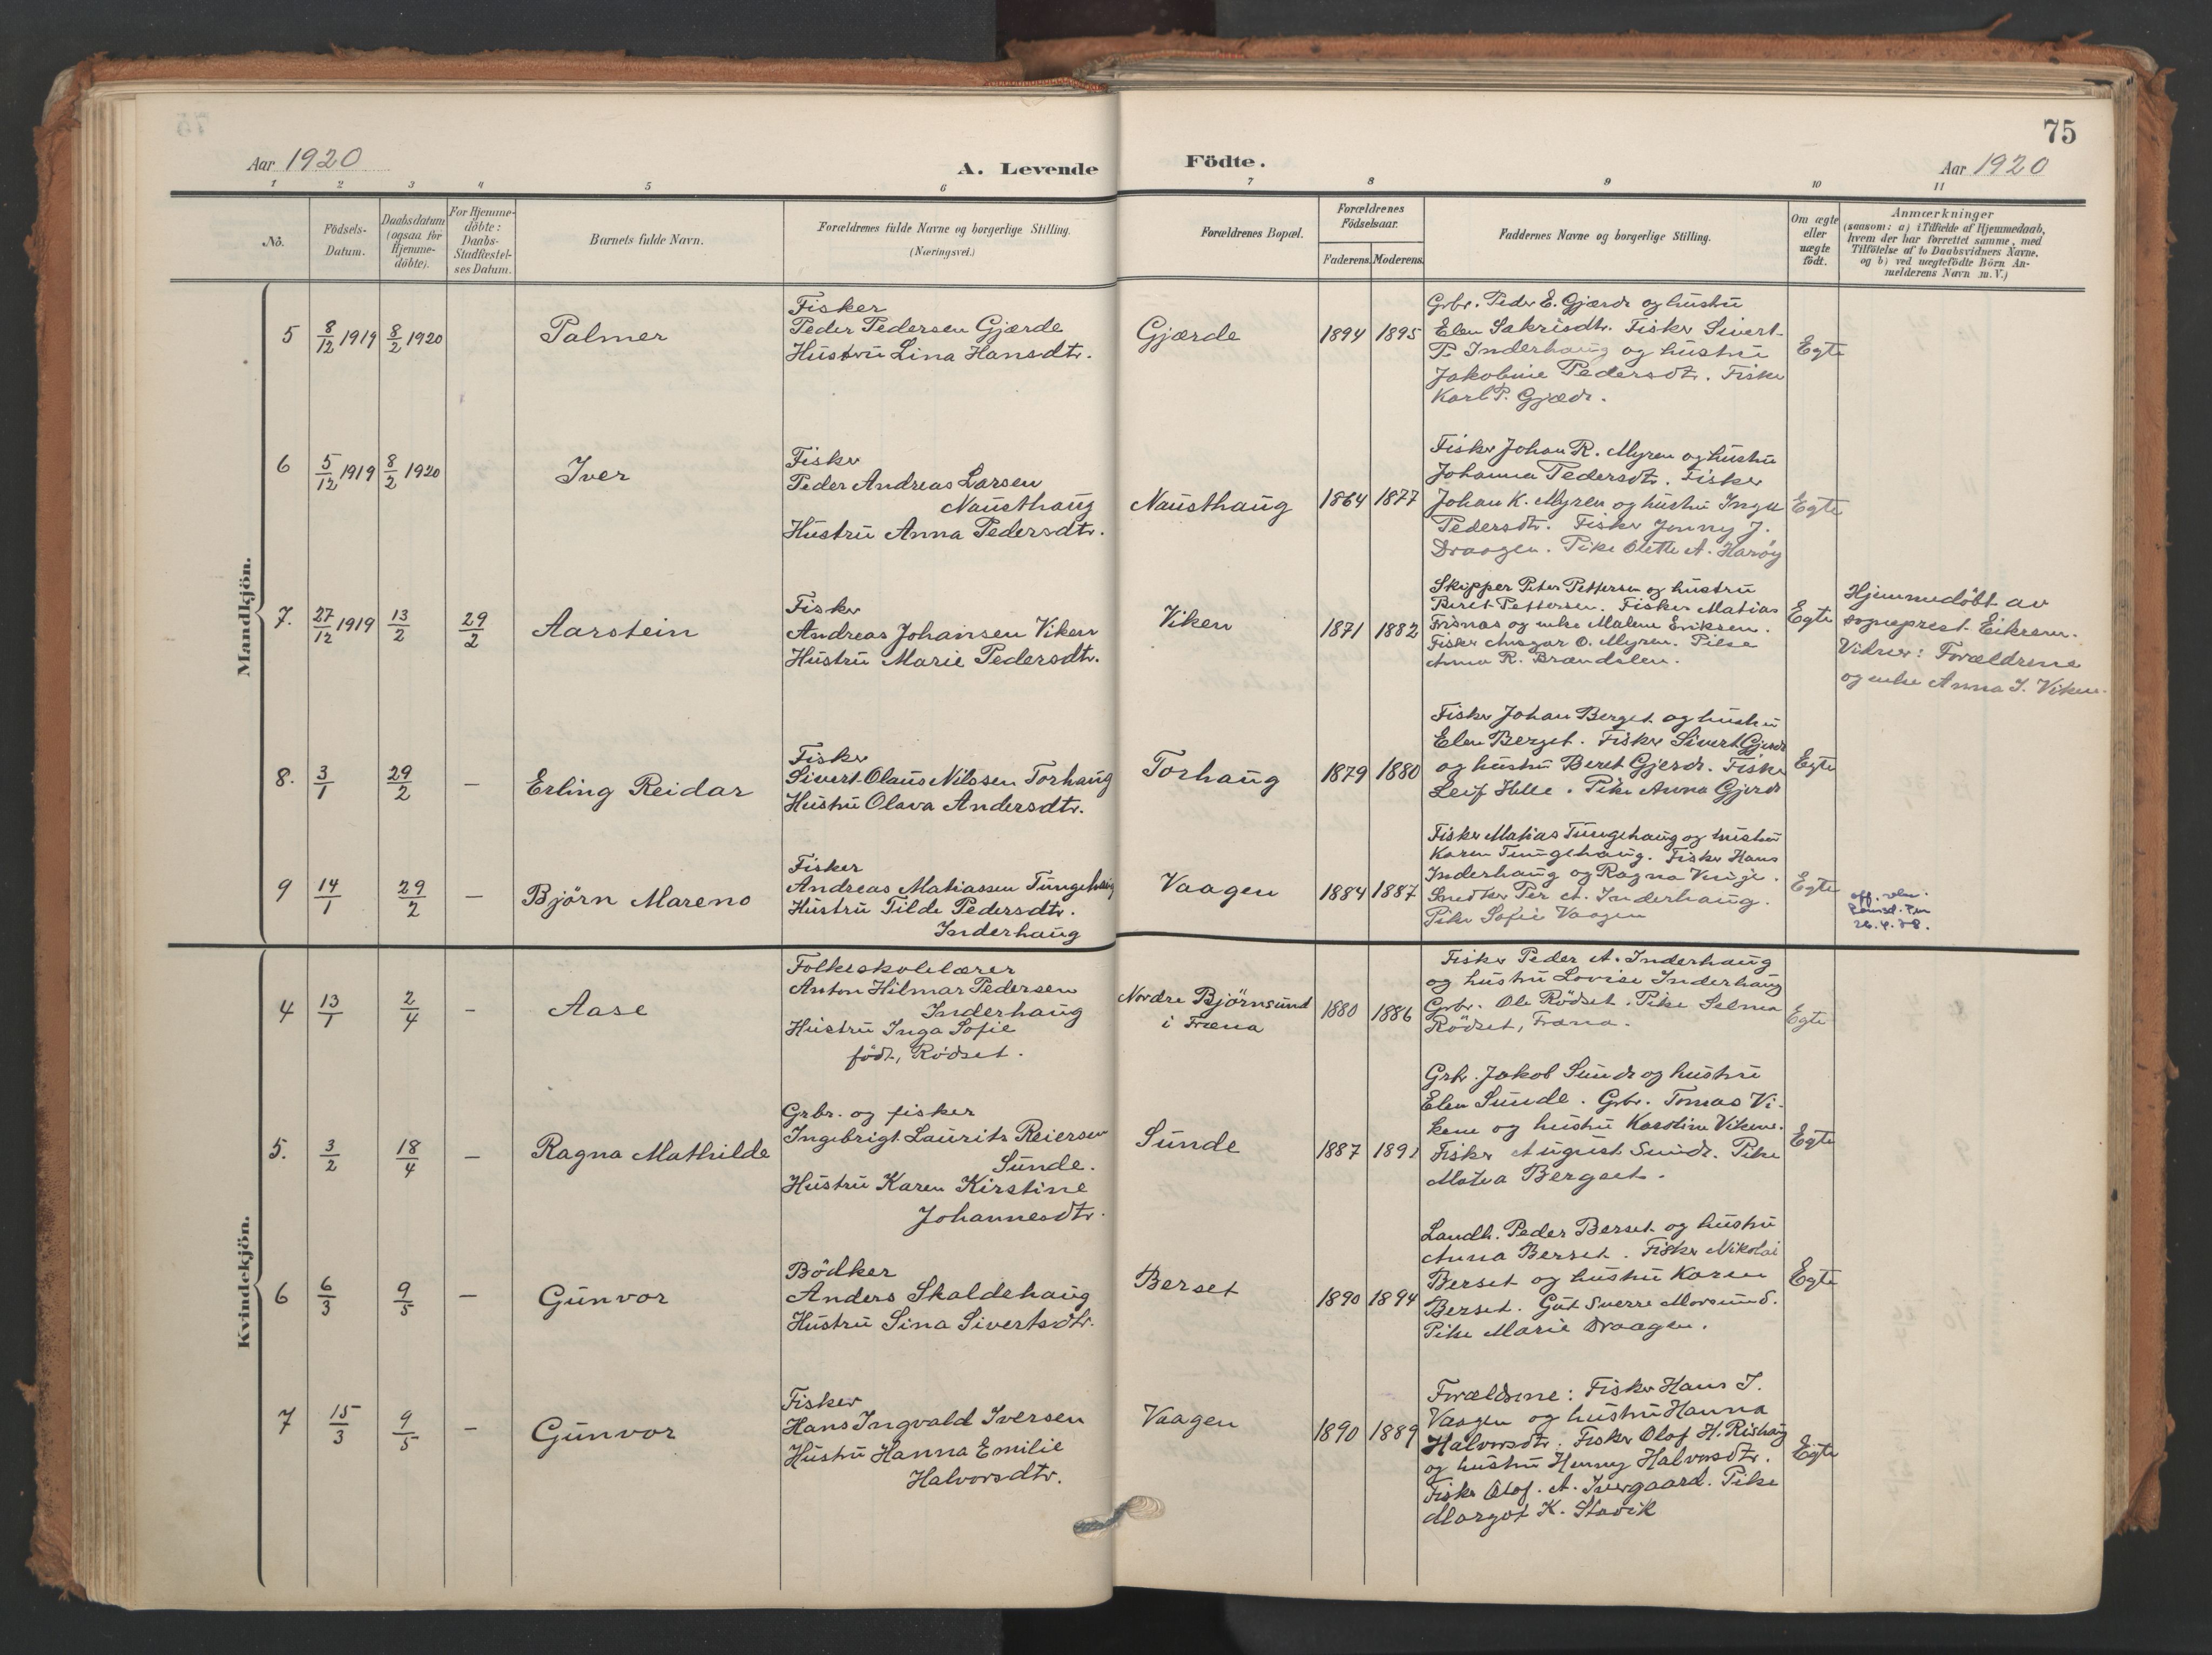 75
Aar 1920
A. Levende Födte.
Aar 1920
1 2 3 4 5 6 7 8 9 10 11
No.
Födsels-
Datum.
Daabsdatum
(ogsaa for
Hjemme-
döbte).
For Hjemme-
döbte:
Daabs-
Stadfæstel-
ses Datum.
Barnets fulde Navn.
Forældrenes fulde Navne og borgerlige Stilling.
(Næringsvei.)
Forældrenes Bopæl.
Forældrenes
Födselsaar.
Faderens. Moderens.
Faddernes Navne og borgerlige Stilling.
Om ægte
eller
uægte
født.
Anmærkninger
(saasom: a) i Tilfælde af Hjemmedaab,
hvem der har forrettet samme, med
Tilföielse af to Daabsvidners Navne.
og b) ved uægtefödte Börn An-
melderens Navn m. V.)
Mandkjön.
5
8/12 1919
8/2 1920
Palmer
Fisker
Peder Pedersen Gjærde
Hustru Lina Hansdtr.
Gjærde
1894 1895
Grbr. Peder E. Gjærde og hustru
Elen Sakrisdtr. Fisker Sivert
P. Inderhaug og hustru
Jakobine Pedersdtr. Fisker
Karl P. Gjærde.
Egte
6
5/12 1919
8/2 1920
Iver
Fisker
Peder Andreas Larsen
Nausthaug
Hustru Anna Pedersdtr.
Nausthaug
1864 1877
Fisker Johan R. Myren og hustru
Johanna Pedersdtr. Fisker
Johan K. Myren og hustru Inga
Pedersdtr. Fisker Jonny J.
Draagen. Pike Olette A. Haröy
Egte
7.
27/12 1919
13/2
29/2
Aarstein
Fisker
Andreas Johansen Viken
Hustru Marie Pedersdtr.
Viken
1871 1882
Skipper Peter Pettersen og hustru
Beret Pettersen. Fisker Matias
og enke Malene Eriksen.
Fisker Ansgar O. Myren. Pike
Anna R. Brandslen.
Egte
Hjemmedöbt av
sogneprest Eikrem.
Vidner: Forældrene
og enke Anna J. Viken.
8.
3/1
29/2
—
Erling Reidar
Fisker
Sivert Olaus Nilssen Torhaug
Hustru Olava Andersdtr.
Torhaug
1879 1880
Fisker Johan Berget og hustru
Elen Berget. Fisker Sivert Gjerde
og hustru Beret Gjerde. Fisker
Leif Helle. Pike Anna Gjerde
Egte
9
14/1
29/2
—
Björn Mareno
Fisker
Andreas Matiassen Tungehaug
Hustru Tilde Pedersdtr.
Inderhaug
Vaagen
1884 1887
Fisker Matias Tungehaug og hustru
Karen Tungehaug. Fisker Hans
Inderhaug og Ragna Vinje.
Snedker Per A. Inderhaug.
Pike Sofie Vaagen
Egte
26.4.38.
Kvindekjön.
4
13/1
2/4
-
Aase
Folkeskolelærer
Anton Hilmar Pedersen
Inderhaug
Hustru Inga Sofie
født, Rödset.
Nordre Björnsund
i Fræna
1880 1886
Fisker Peder A. Inderhaug
og hustru Lovise Inderhaug
Grbr. Ole Rödset. Pike Selma
Rödset, Fræna.
Egte
5.
3/2
18/4
—
Ragna Mathilde
Grbr. og fisker
Ingebrigt Laurits Reiersen
Sunde.
Hustru Karen Kirstine
Johannesdtr.
Sunde
1887 1891
Grbr. Jakob Sunde og hustru
Elen Sunde. Grbr. Tomas Vi-
kene og hustru Karoline Vikene.
Fisker August Sunde. Pike
Matea Bergset.
Egte
6
6/3
9/5
—
Gunvor
Bödker
Anders Skaldehaug
Hustru Sina Sivertsdtr.
Berset
1890 1894
Landh. Peder Berset og hustru
Anna Berset. Fisker Nikolai
Berset og hustru Karen
Berset. Gut Sverre Morsund.
Pike Marie Draagen.
Egte
7
15/3
9/5
-
Gunvor
Fisker
Hans Ingvald Iversen
Hustru Hanna Emilie
Halvorsdtr.
Vaagen
1890 1889
Forældrene: Fisker Hans I.
Vaagen og hustru Hanna
Halvorsdtr. Fisker Olaf H. Rishaug
og hustru Henny Halvorsdtr.
Fisker Olaf. A. Ivergaard. Pike
Margot K. Stavik
Egte